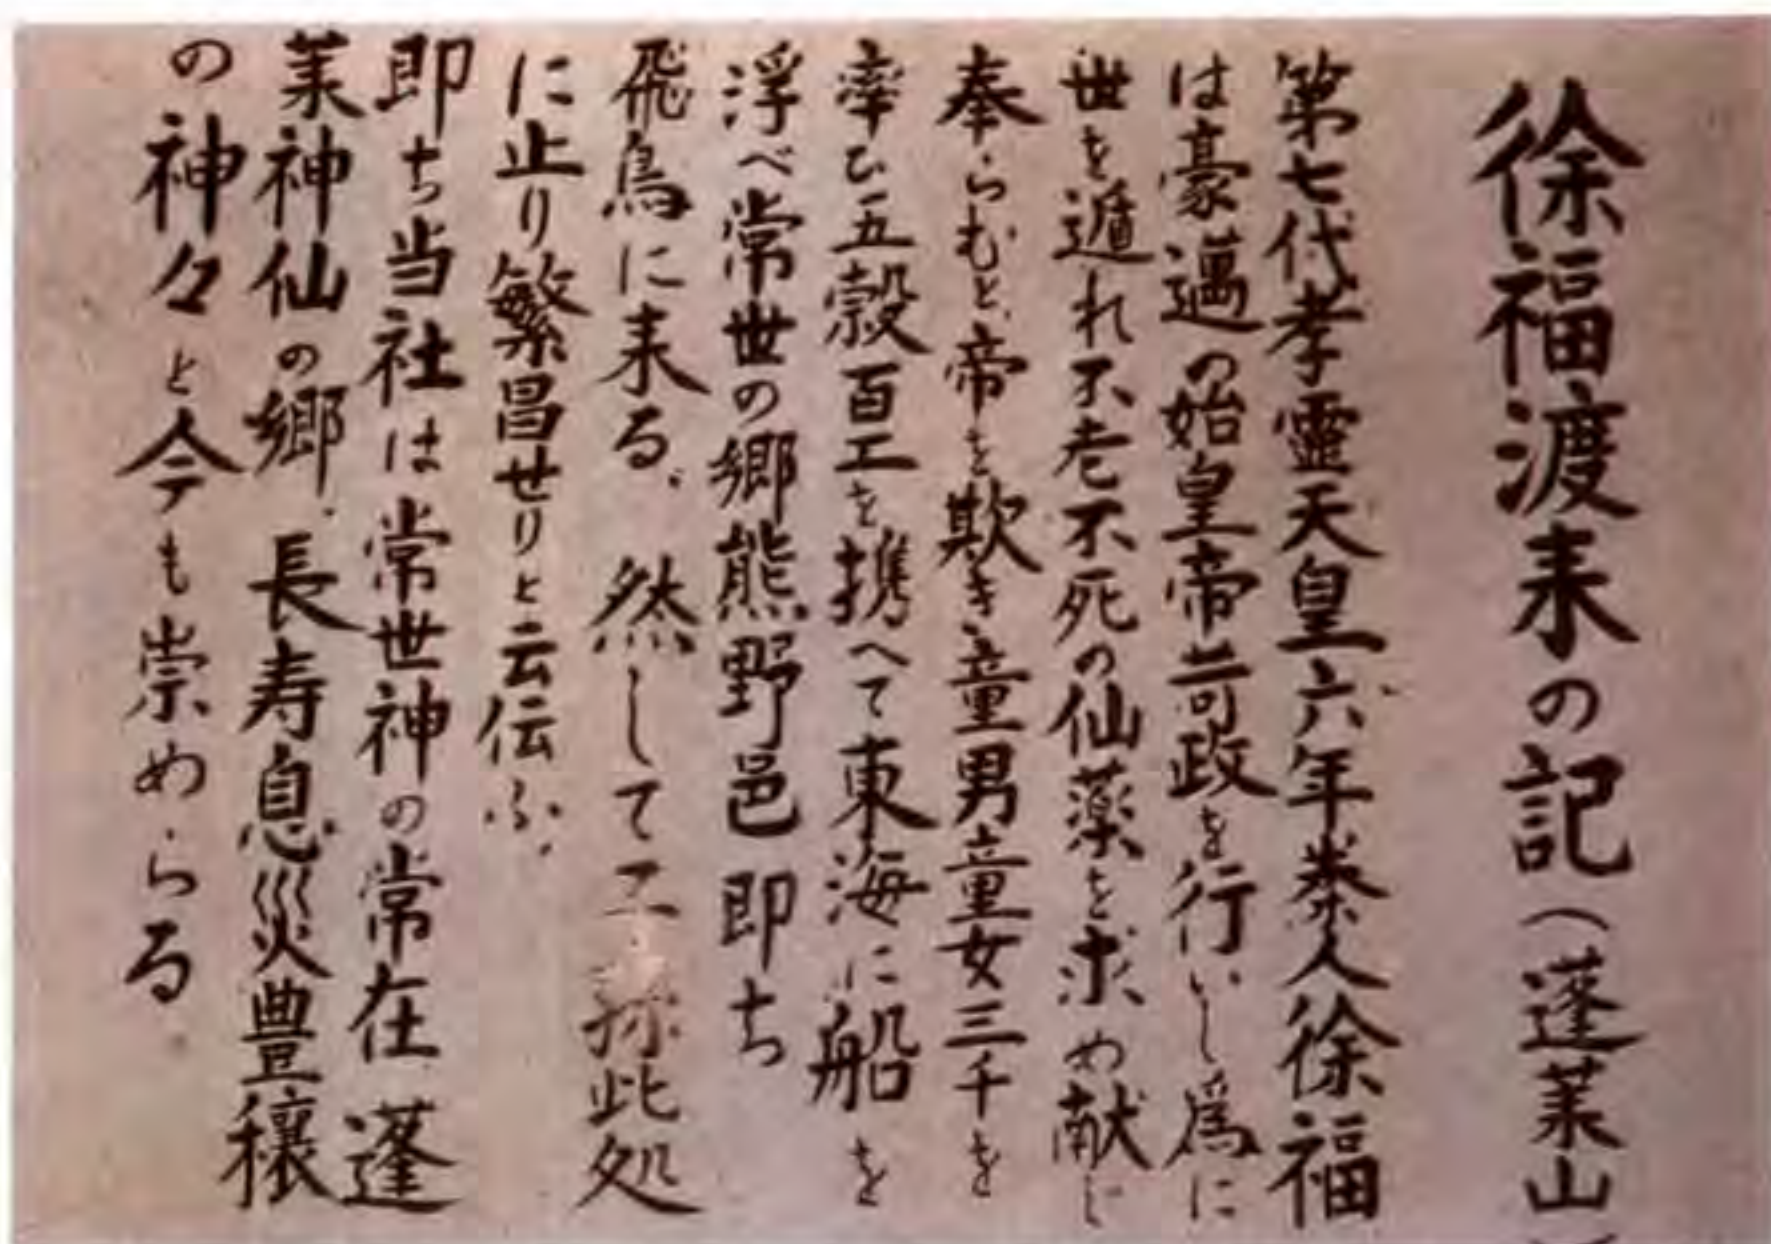 徐福渡来の記（蓬莱山
第七代孝霊天皇六年秦人徐福
は豪邁の始皇帝苛政を行いし為に
世を遁れ不老不死の仙薬を求め献じ
奉らむと帝を欺き童男童女三千を
率ひ五穀百工を携へて東海に船を
浮べ常世の郷熊野邑即ち
飛鳥に来る。然して子孫此処
に止り繁昌せりと云伝ふ。
即ち当社は常世神の常在蓬
莱神仙の郷、長寿息災豊穣
の神々と今も崇めらる。